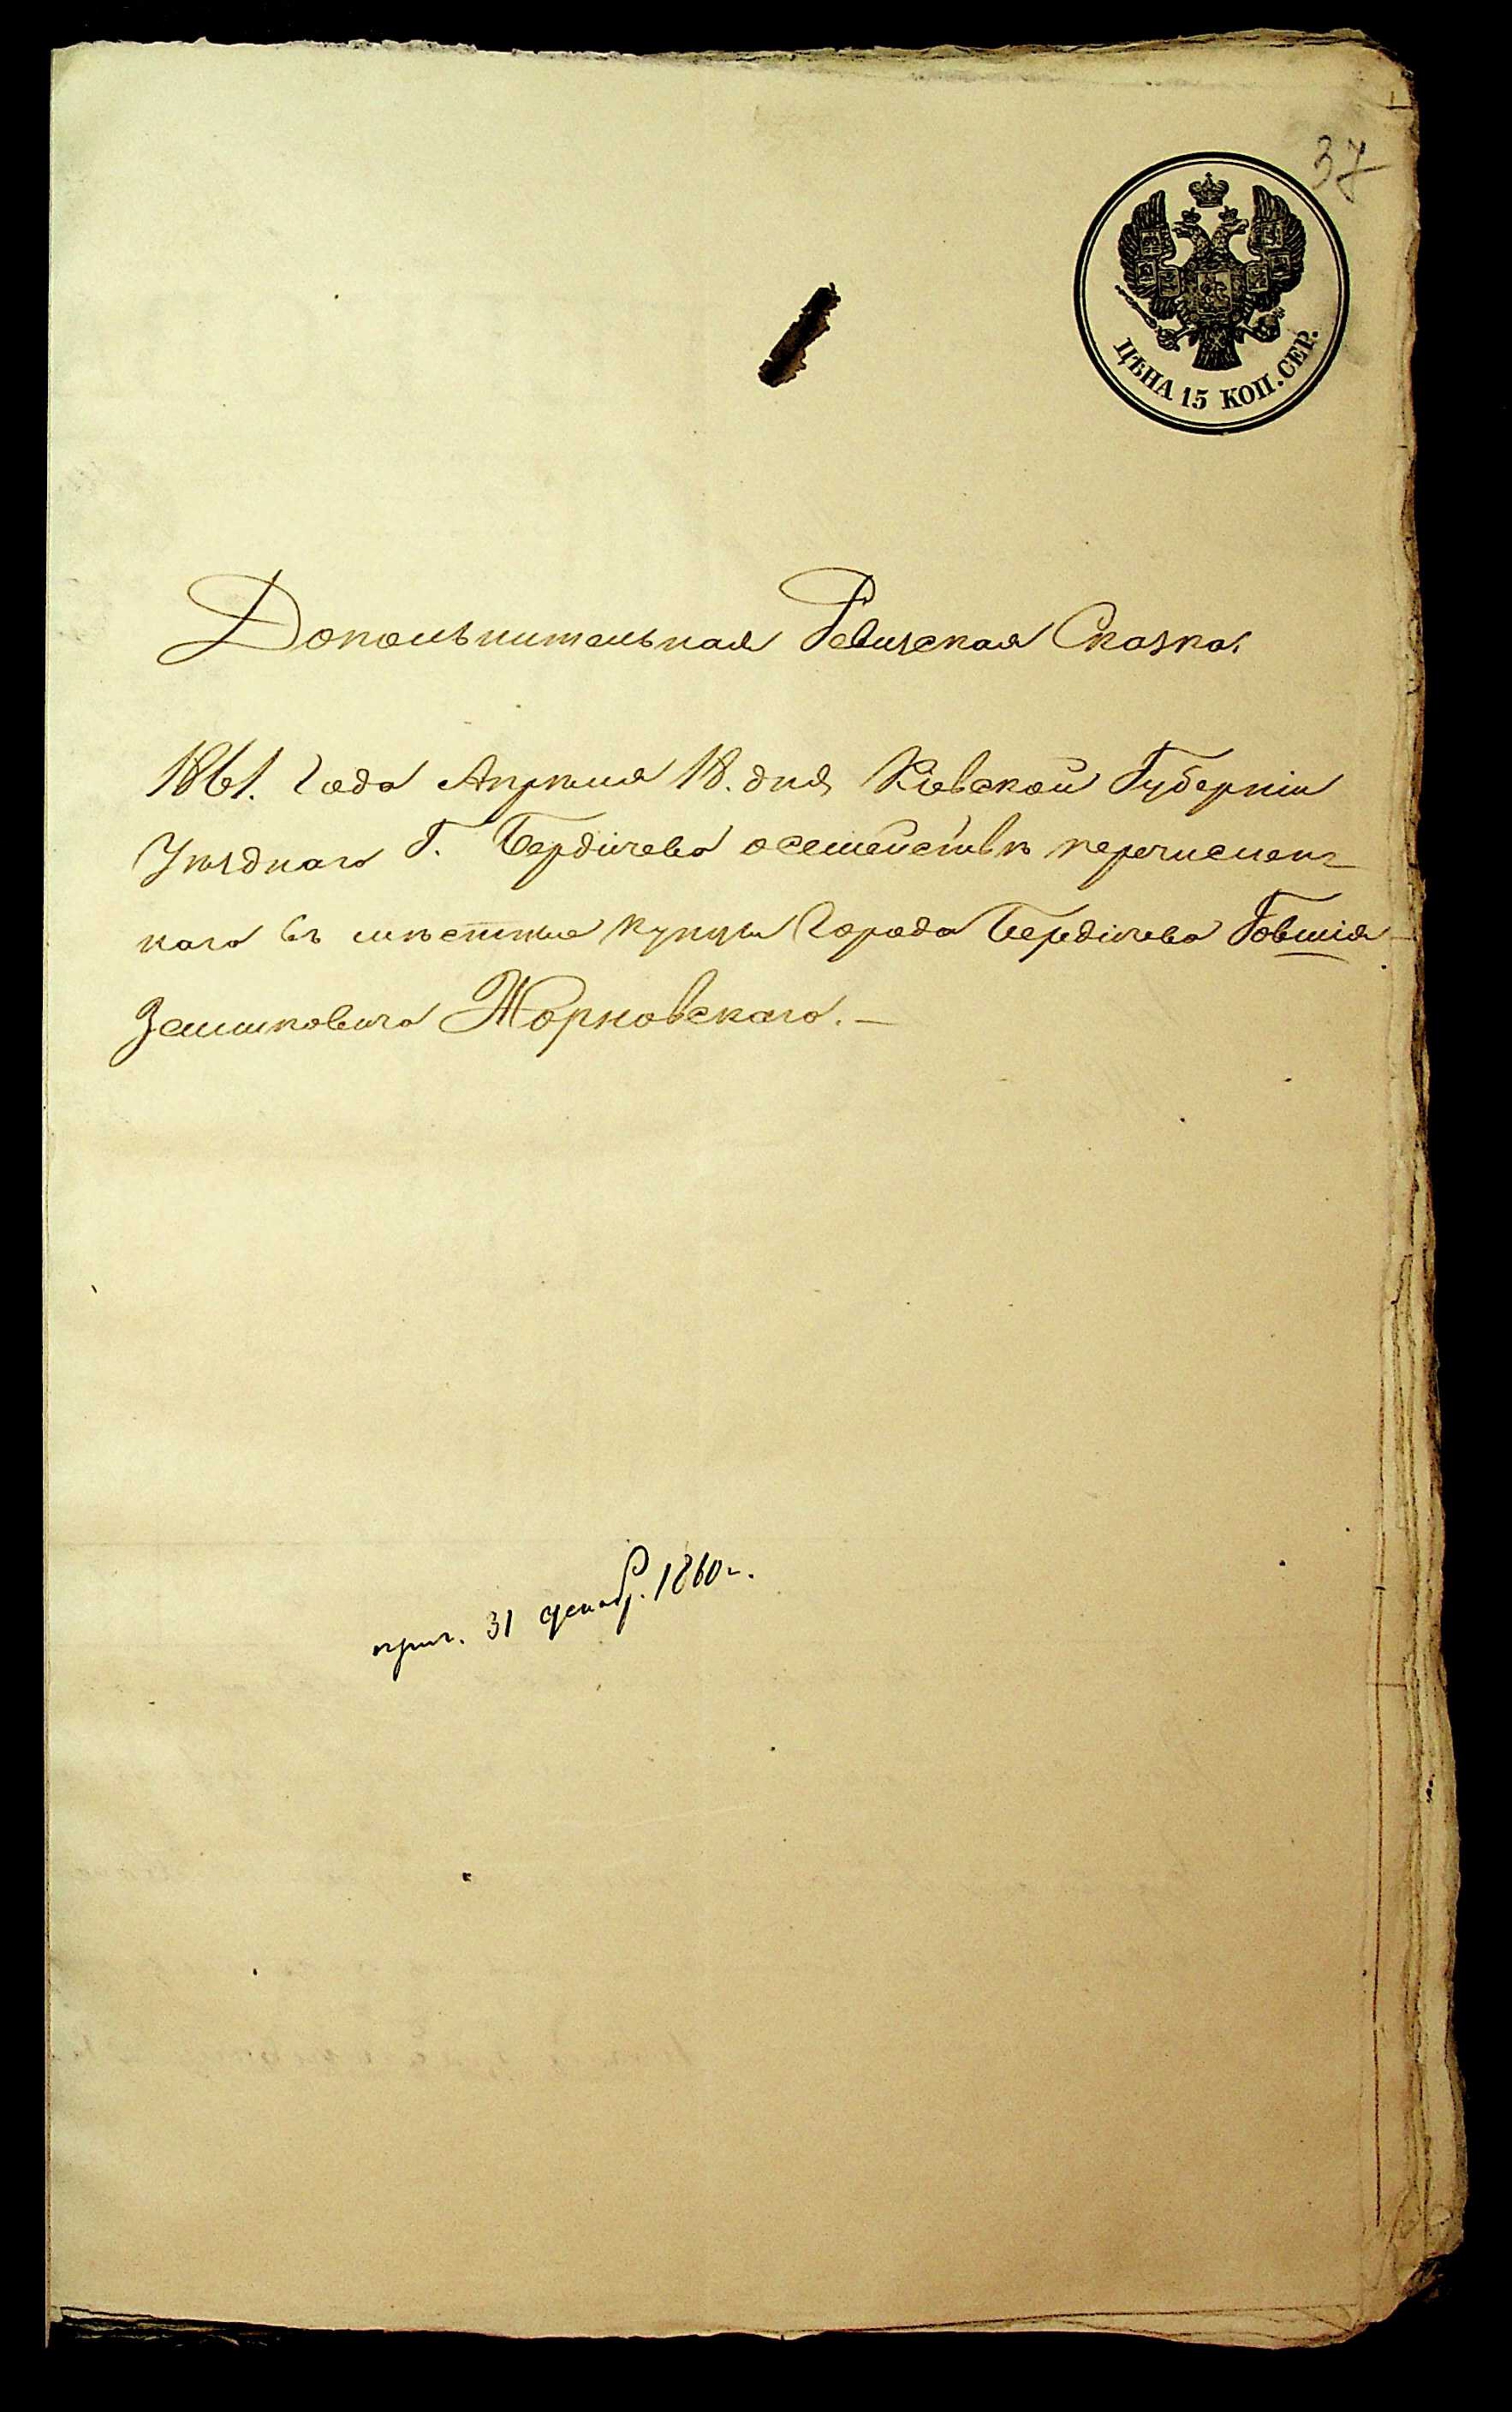 37
ЦѢНА 15 КОП. СЕР.
Допольнительная Ревизская Сказка.
1861. Года Апрѣля 18. дня Кіевской Губерніи
Уѣзднаго Г. Бердичева осемействѣ перечислен-
наго въ мѣстные купцы Города Бердичева Говшія
Зеликовича Жорновскаго. —
прич. 31 декабр. 1860 г.